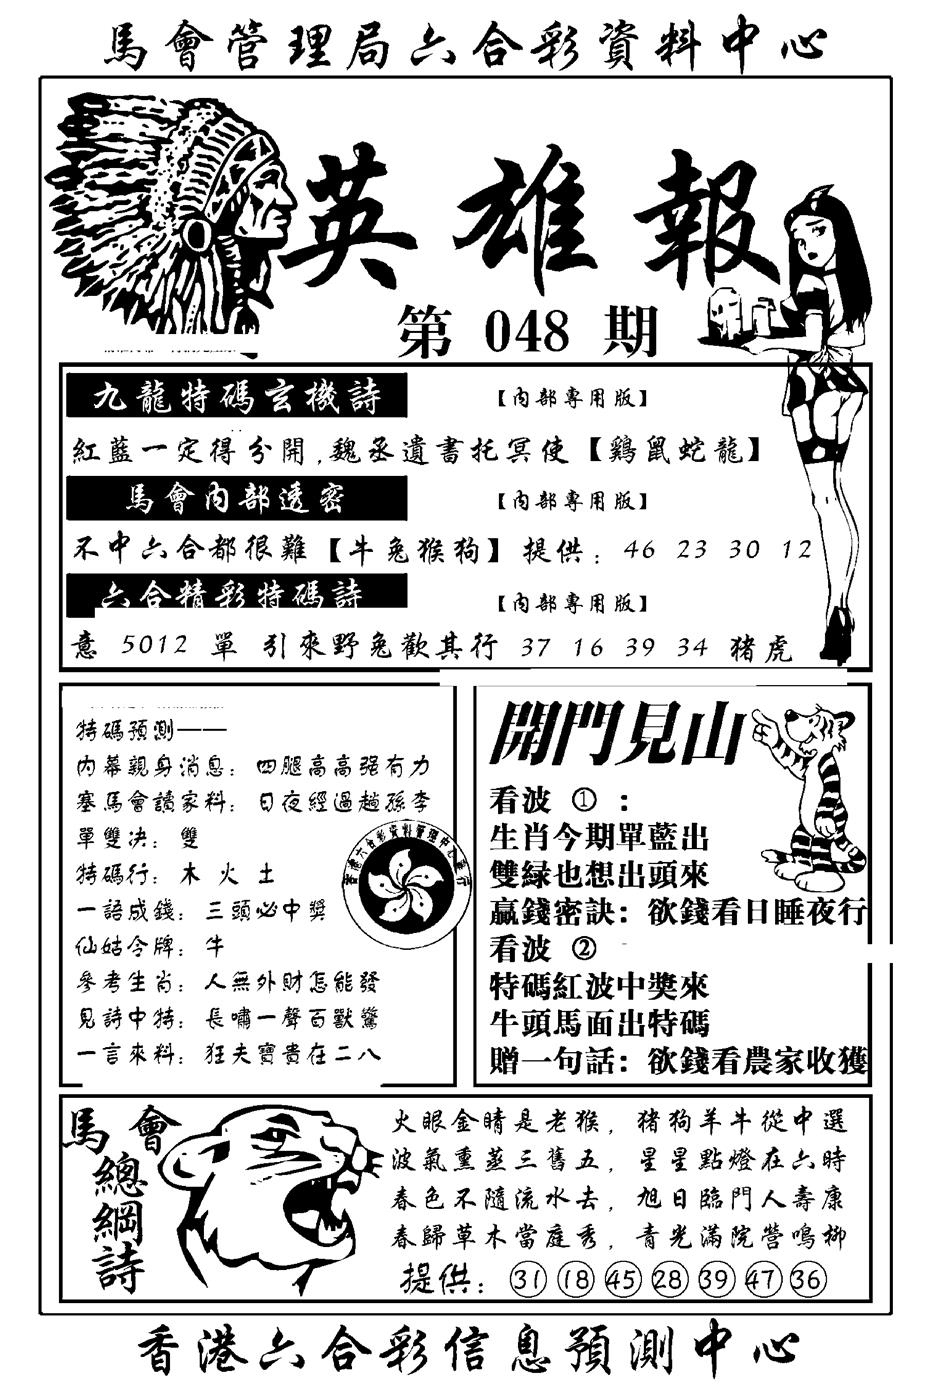 馬會管理局六合彩資料中心
英雄報
第 048 期
九龍特碼玄機詩 【內部專用版】
紅藍一定得分開,魏丞遺書托冥使【鷄鼠蛇龍】
馬會內部透密 【內部專用版】
不中六合都很難【牛兔猴狗】提供：46 23 30 12
六合精彩特碼詩 【內部專用版】
意 5012 單 引來野兔歡其行 37 16 39 34 猪虎
特碼預測——
內幕親身消息：四腿高高强有力
塞馬會讀家料：日夜經過趙孫李
單雙决：雙
特碼行：木 火 土
一語成錢：三頭必中獎
仙姑令牌：牛
參考生肖：人無外財怎能發
見詩中特：長嘯一聲百獸驚
一言來料：狂夫寶貴在二八
香港六合彩資料管理中心發行
開門見山
看波 ① :
生肖今期單藍出
雙緑也想出頭來
贏錢密訣：欲錢看日睡夜行
看波 ②
特碼紅波中獎來
牛頭馬面出特碼
贈一句話：欲錢看農家收獲
馬會
總綱詩
火眼金睛是老猴，猪狗羊牛從中選
波氣熏蒸三舊五，星星點燈在六時
春色不隨流水去，旭日臨門人壽康
春歸草木當庭秀，青光滿院營鳴柳
提供：㉛ ⑱ ㊺ ㉘ ㊴ ㊼ ㊱
香港六合彩信息預測中心